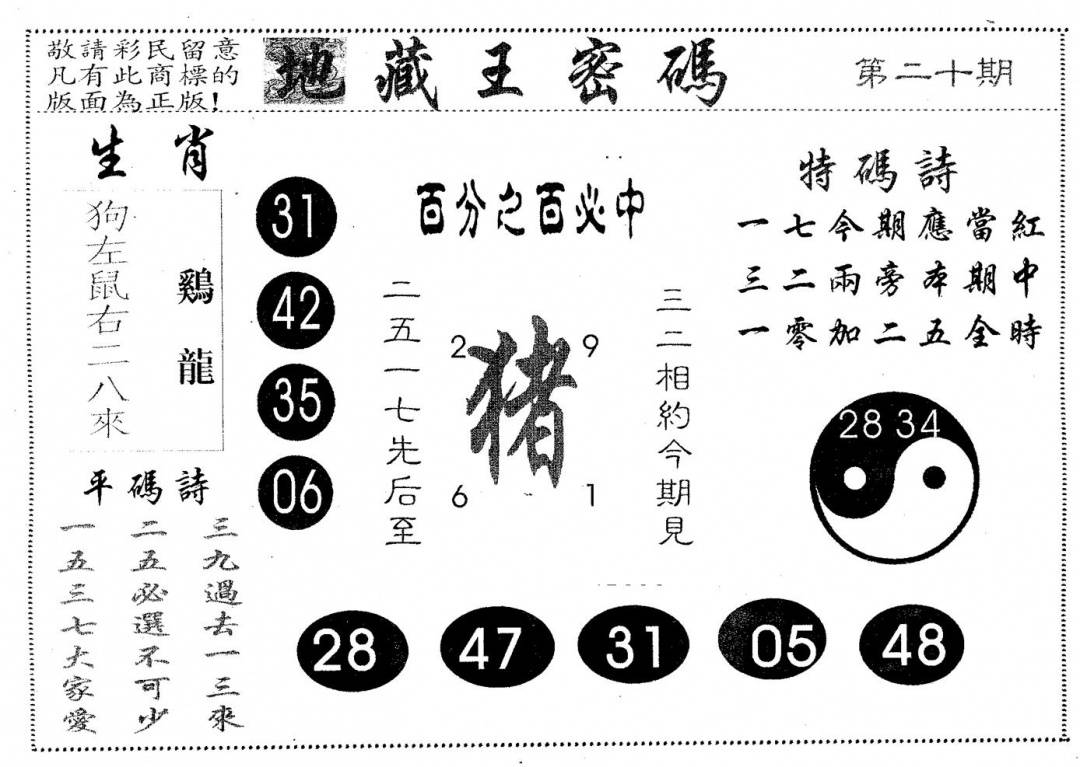 敬請彩民留意
凡有此商標的
版面為正版!
地藏王密碼
第二十期
生肖
狗左鼠右二八來
鷄龍
平碼詩
三九過去一三來
二五必選不可少
一五三七大家愛
31
42
35
06
百分之百必中
二五一七先后至
2
9
猪
6
1
三二相約今期見
特碼詩
一七今期應當紅
三二兩旁本期中
一零加二五全時
28 34
28
47
31
05
48